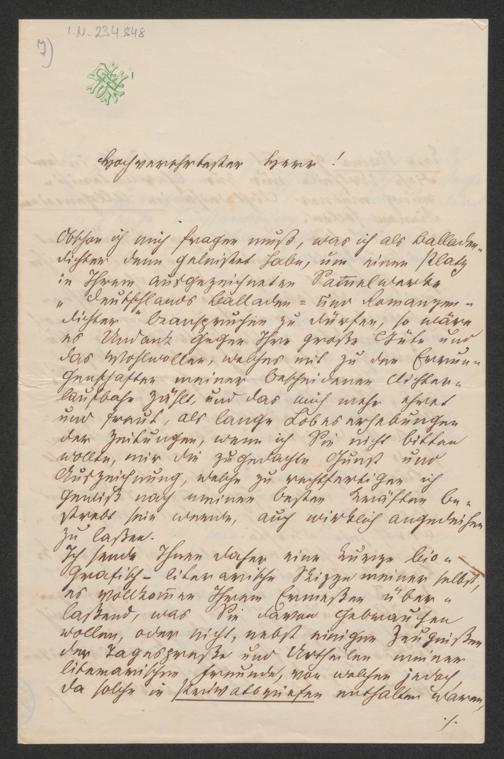 I.N. 234.848
7)
Hochverehrtester Herr!
Obschon ich mich fragen muß, was ich als Balladen-
dichter denn geleistet habe, um einen Platz
in Ihrem ausgezeichneten Sammelwerke
"Deutschlands Balladen- und Romanzen-
dichter" beanspruchen zu dürfen, so wäre
es Undank gegen Ihre große Güte und
das Wohlwollen, welches mit zu den Errun-
genschaften meiner bescheidenen Dichter-
laufbahn zählt, und das mich mehr ehret
und freut, als lange Lobeserhebungen
der Zeitungen, wenn ich Sie nicht bitten
wollte, mir die zugedachte Gunst und
Auszeichnung, welche zu rechtfertigen ich
gewiß nach meinen besten Kräften be-
strebt sein werde, auch wirklich angedeihen
zu laßen.
Ich sende Ihnen daher eine kurze bio-
grafisch-literarische Skizze meiner selbst,
es vollkommen Ihrem Ermeßen über-
laßend, was Sie davon gebrauchen
wollen, oder nicht, nebst einigen Zeugnißen
der Tagespreße und Urtheilen meiner
literarischen Freunde, von welchen jedoch,
da solche in Privatbriefen enthalten waren,
./.